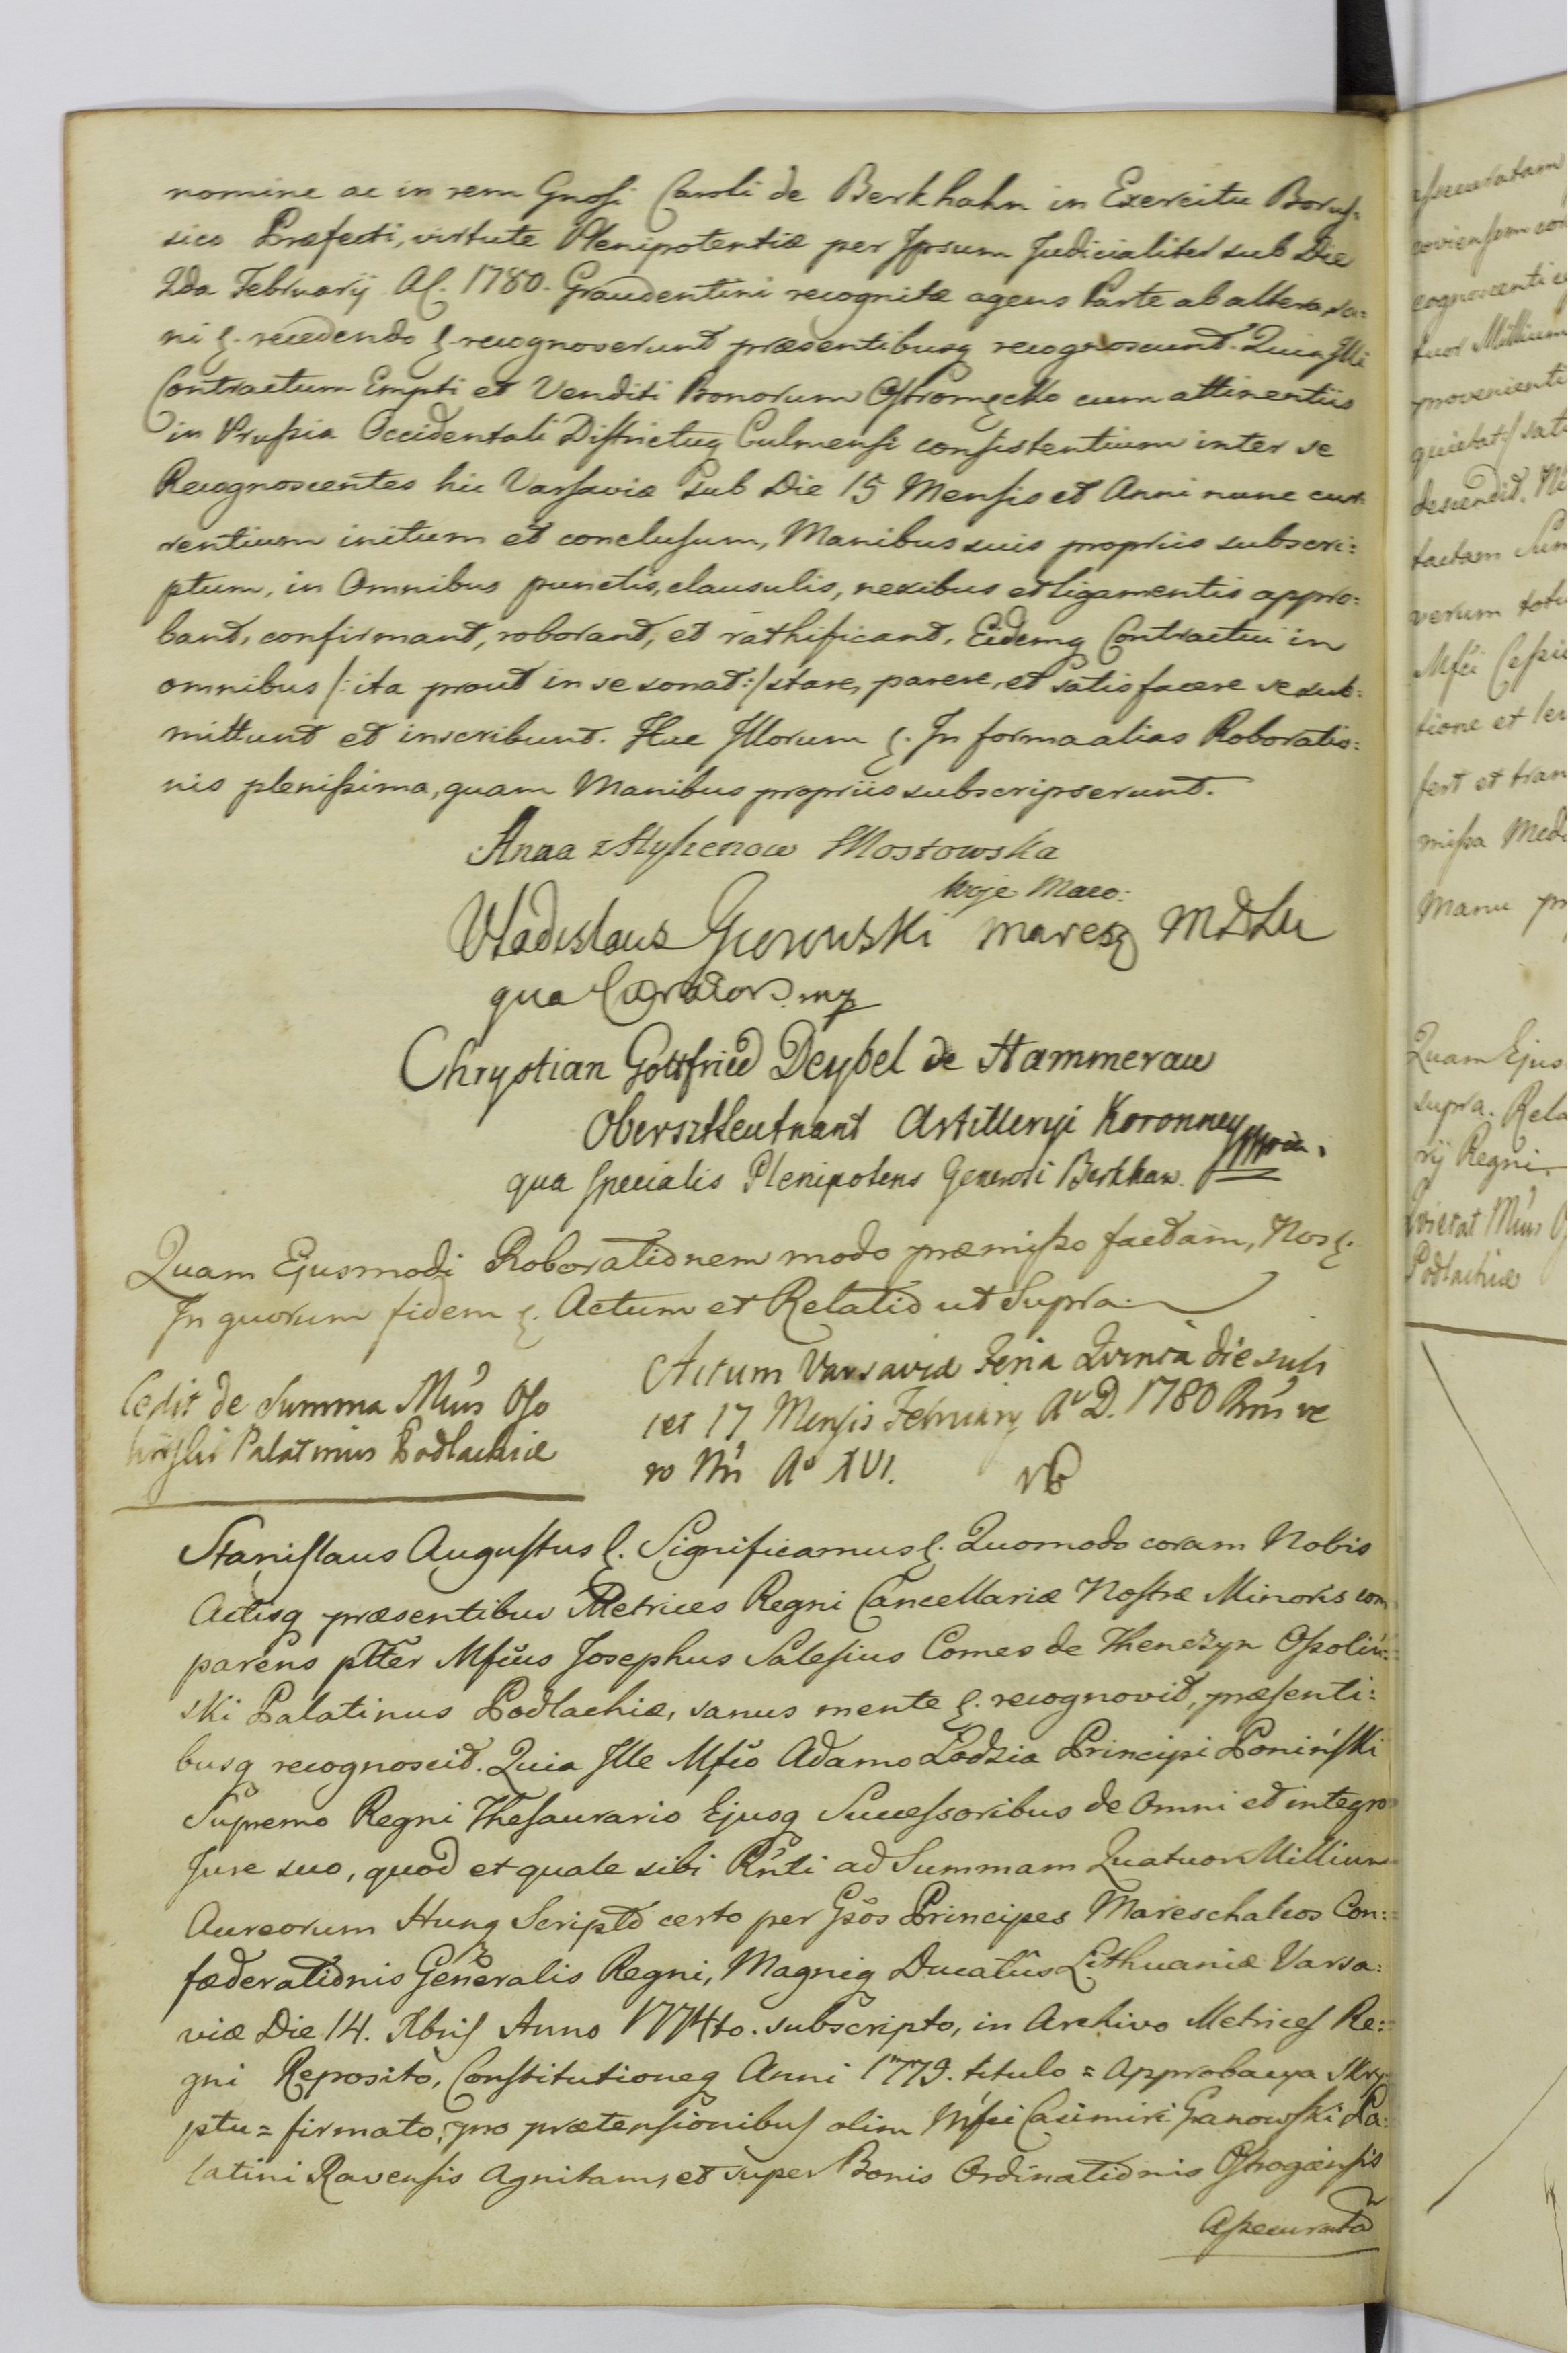 nomine ac in rem Gnosi Caroli de Berkhahn in Exercitu Borus=
sico Præfecti, virtute Plenipotentiæ per Ipsum Judicialiter sub Die
2da February A. 1780. Graudentini recognitæ agens Parte ab altera, sa=
ni &. recedendo &. recognoverunt præsentibusq recognoscunt. Quia Illi
Contractum Empti et Venditi Bonorum Ostromęcko cum attinentiis
in Prussia Occidentali Districtuq Culmensi consistentium inter se
Recognoscentes hic Varsaviæ sub Die 15 Mensis et Anni nunc cur=
rentium initum et conclusum, Manibus suis propriis subscri=
ptum, in Omnibus punctis, clausulis, nexibus et ligamentis appro=
bant, confirmant, roborant, et rathificant. Eidemq Contractui in
omnibus /: ita prout in se sonat :/ stare, parere, et satisfacere se sub=
mittunt et inscribunt. Huc Illorum &. In forma alias Roboratio=
nis plenissima, quam Manibus propriis subscripserunt.
Anna z Hylzenow Mostowska
Woje Mazo:
Vladislaus Gurowski maresz M D Lu
qua Curator mp
Chrystian Gottfried Deybel de Hammerau
Obersztleutnant Artilleryi Koronney mpria.
qua specialis Plenipotens Generosi Berkhan.
Quam Ejusmodi Roborationem modo præmisso factam, Nos &.
In quorum fidem &. Actum et Relatio ut Supra.
Cedit de Summa Mfus Oso
liński Palatinus Podlachiæ
Actum Varsaviæ Feria Quinta die scili
cet 17 Mensis February A° D. 1780 Rni ve
ro Nri A° XVI.
Stanislaus Augustus &. Significamus &. Quomodo coram Nobis
Actisq præsentibus Metrices Regni Cancellariæ Nostræ Minoris com
parens pltter Mfcus Josephus Salesius Comes de Thenczyn Ossoliń=
ski Palatinus Podlachiæ, sanus mente &. recognovit, præsenti=
busq recognoscit. Quia Ille Mfco Adamo Lodzia Principi Poniński
Supremo Regni Thesaurario Ejusq Successoribus de Omni et integro
Jure suo, quod et quale sibi Rnti ad Summam Quatuor Millium
Aureorum Hung Scripto certo per Gsos Principes Mareschalcos Con=
fæderationis Generalis Regni, Magniq Ducatûs Lithuaniæ Varsa=
viæ Die 14. Xbris Anno 1774to. subscripto, in Archivo Metrices Re=
gni Reposito, Constitutioneq Anni 1779. titulo = Approbacya Skry=
ptu = firmato, pro prætensionibus olim Mfci Casimiri Granowski Pa=
latini Ravensis Agnitam, et super Bonis Ordinationis Ostrogiensis
Assecuratã